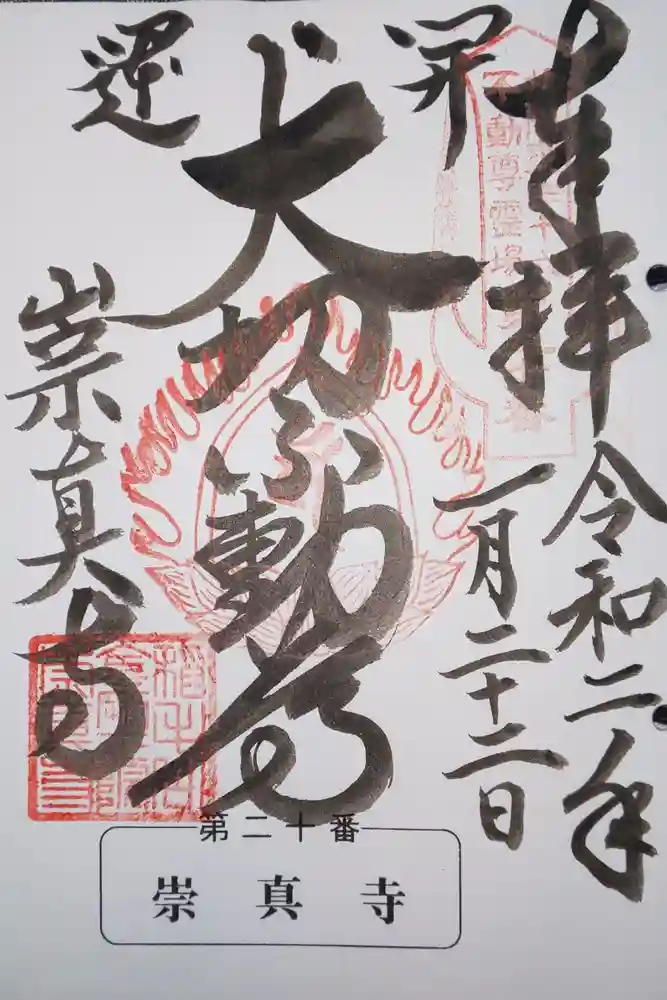 奉拝
令和二年
一月二十二日
不動尊霊場
開運
大切不動尊
崇真寺
第二十番
崇真寺